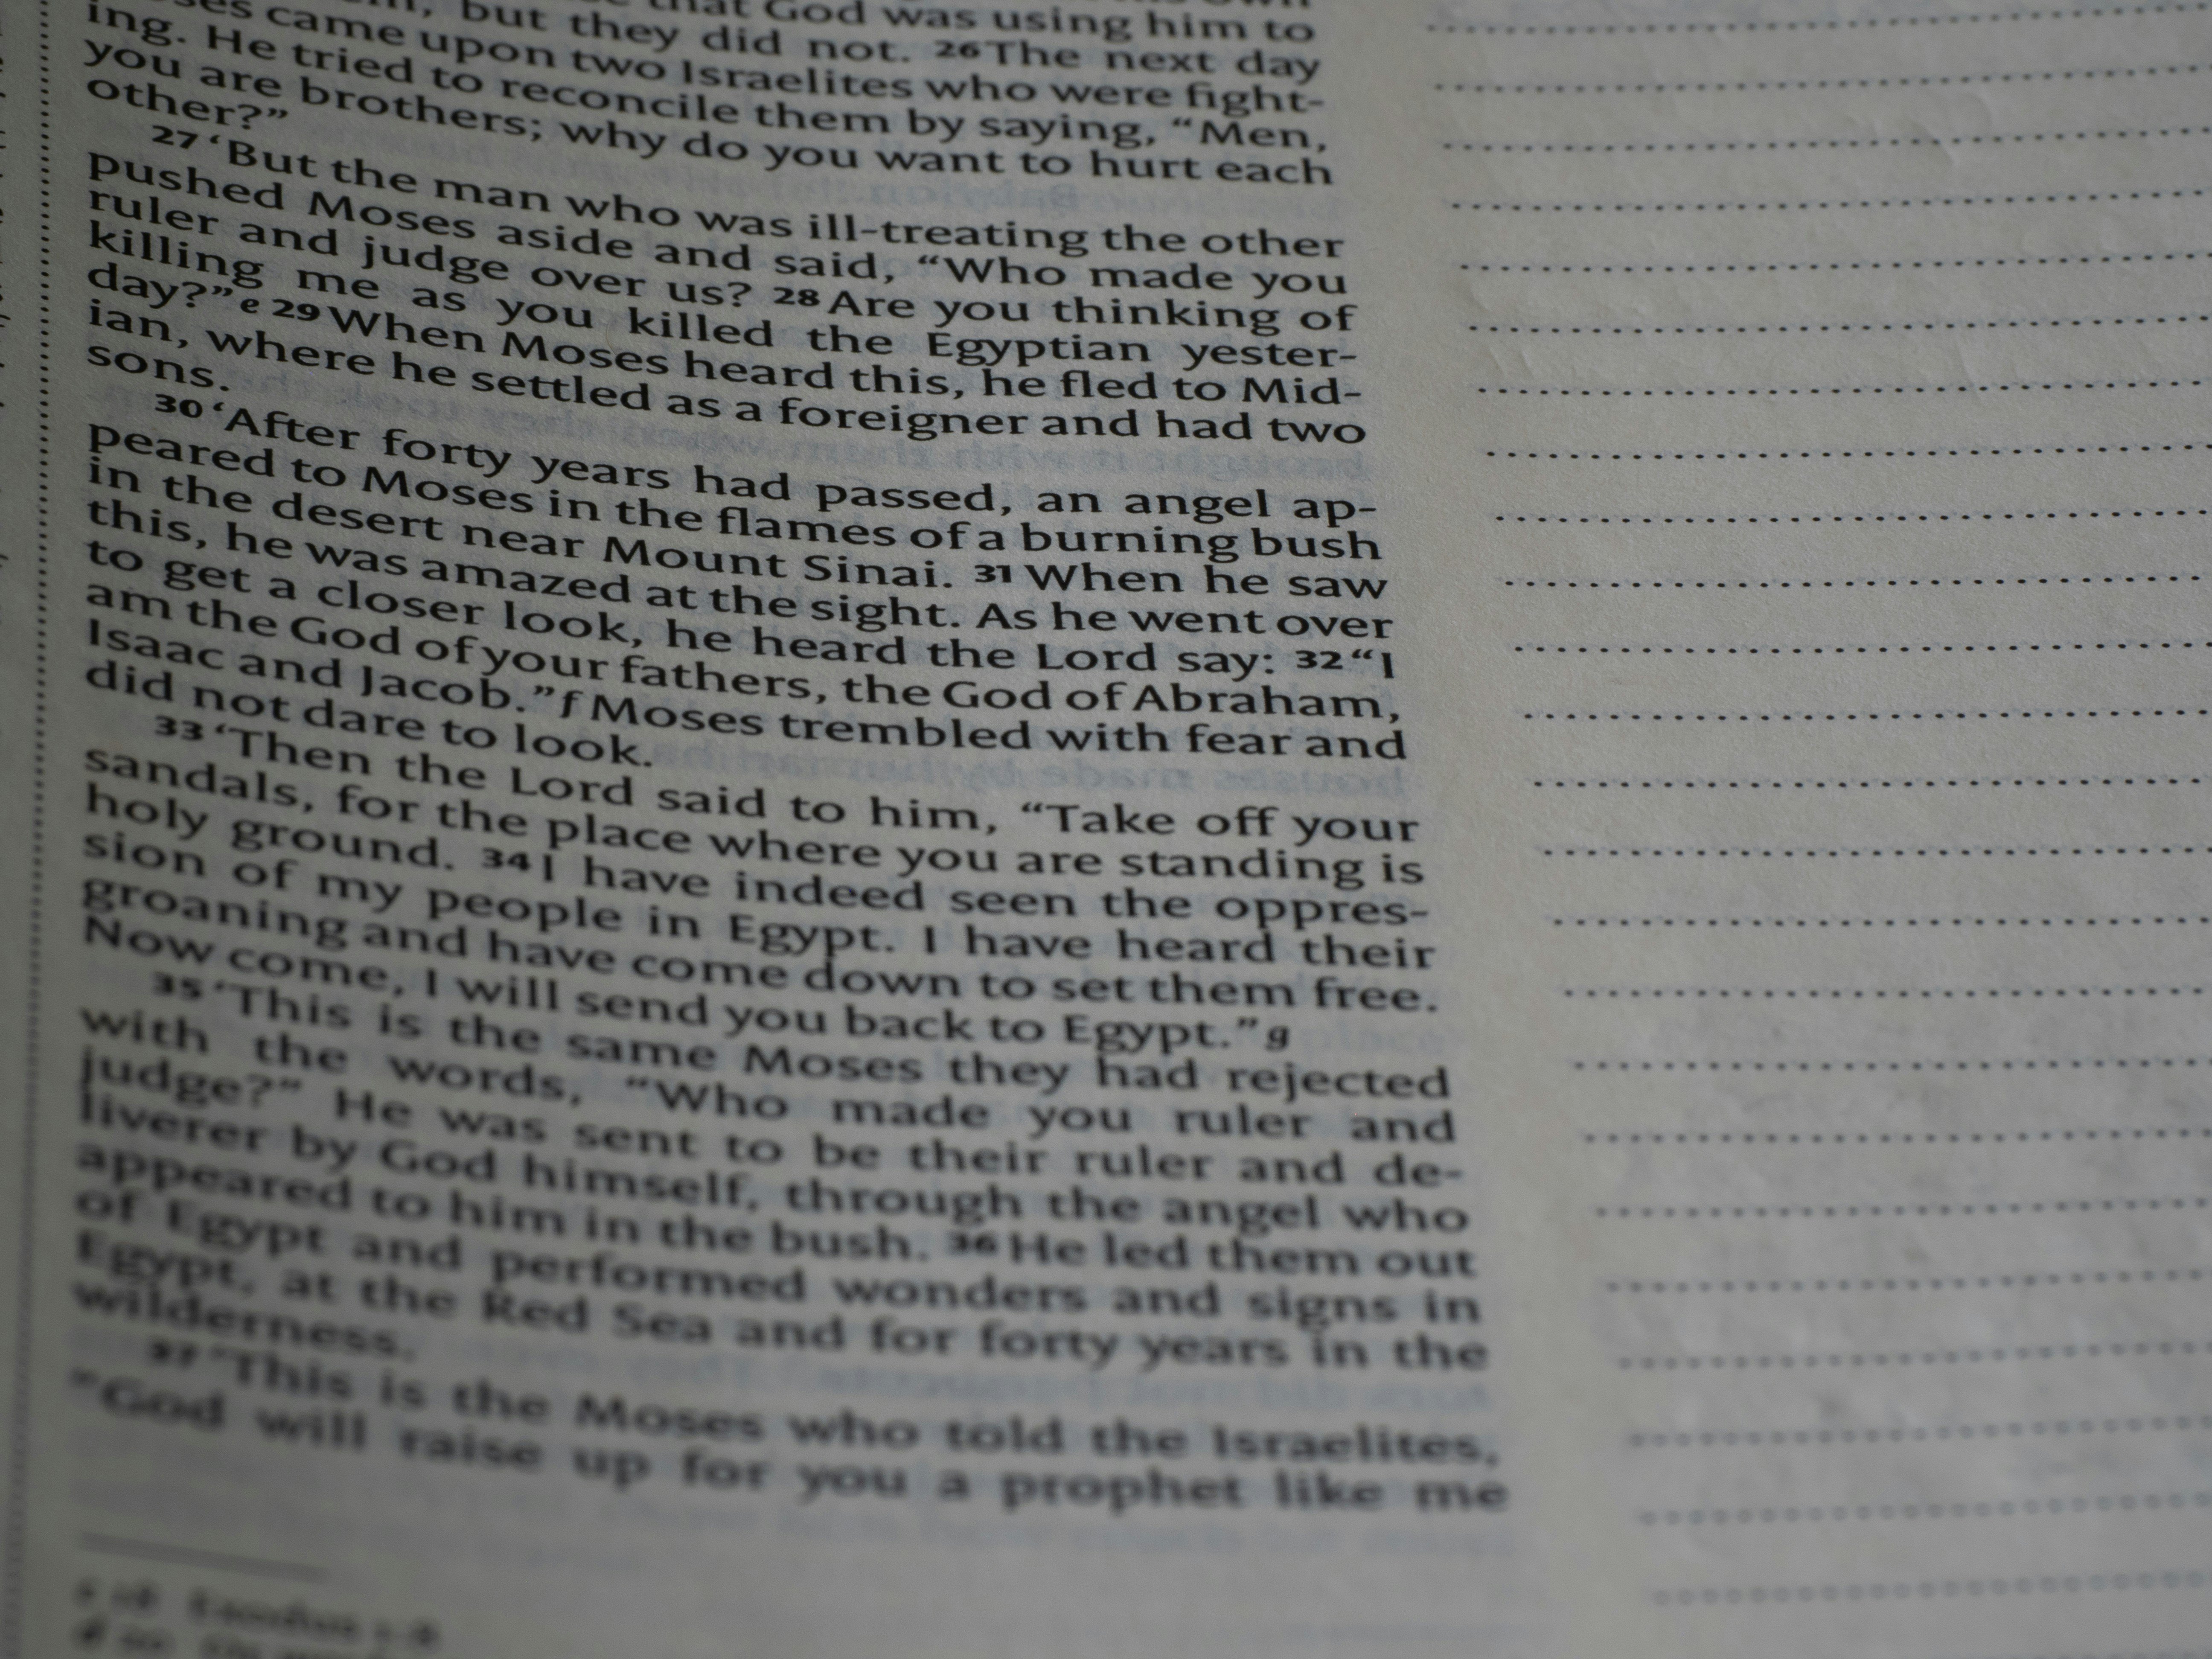 that God was using him to
but they did not. 26 The next day
came upon two Israelites who were fight-
ing. He tried to reconcile them by saying, “Men,
you are brothers; why do you want to hurt each
other?”
27 ‘But the man who was ill-treating the other
pushed Moses aside and said, “Who made you
ruler and judge over us? 28 Are you thinking of
killing me as you killed the Egyptian yester-
day?” e 29 When Moses heard this, he fled to Mid-
ian, where he settled as a foreigner and had two
sons.
30 ‘After forty years had passed, an angel ap-
peared to Moses in the flames of a burning bush
in the desert near Mount Sinai. 31 When he saw
this, he was amazed at the sight. As he went over
to get a closer look, he heard the Lord say: 32 “I
am the God of your fathers, the God of Abraham,
Isaac and Jacob.” f Moses trembled with fear and
did not dare to look.
33 ‘Then the Lord said to him, “Take off your
sandals, for the place where you are standing is
holy ground. 34 I have indeed seen the oppres-
sion of my people in Egypt. I have heard their
groaning and have come down to set them free.
Now come, I will send you back to Egypt.” g
35 ‘This is the same Moses they had rejected
with the words, “Who made you ruler and
judge?” He was sent to be their ruler and de-
liverer by God himself, through the angel who
appeared to him in the bush. 36 He led them out
of Egypt and performed wonders and signs in
Egypt, at the Red Sea and for forty years in the
wilderness.
37 ‘This is the Moses who told the Israelites,
“God will raise up for you a prophet like me
Exodus